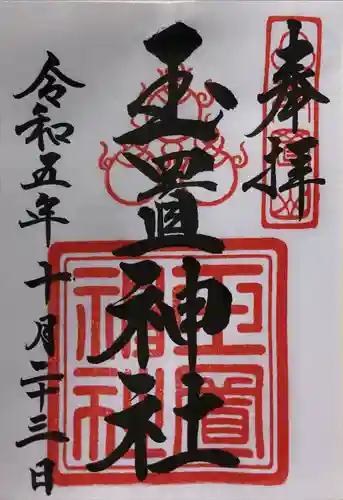 奉拝
玉置神社
玉置
神社
令和五年十月二十三日